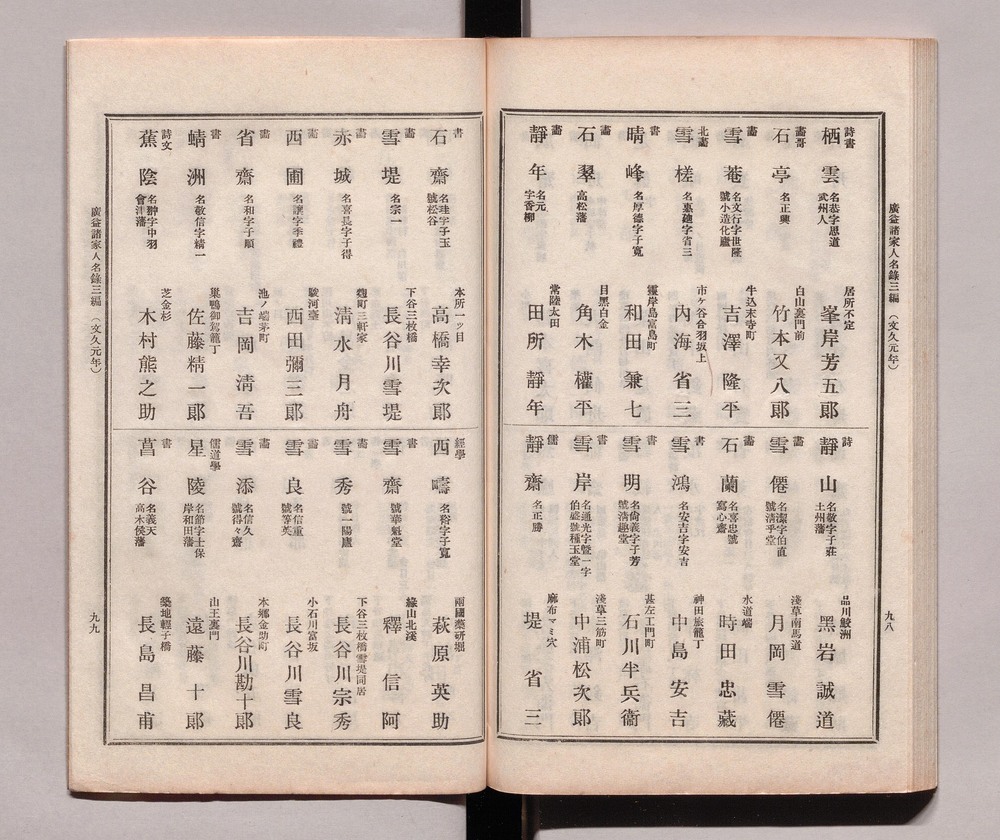 廣益諸家人名錄三編 (文久元年)
九八
詩書 栖雲 名恭字思道 武州人 居所不定 峯岸芳五郎
畫哥 石亭 名正興 白山裏門前 竹本又八郎
畫 雪菴 名文行字世隆 號小造化廬 牛込末寺町 吉澤隆平
北畫 雪槎 字省三 市ケ谷合羽坂上 內海省三
書 晴峰 名厚德字子寬 靈岸島富島町 和田兼七
石翠 高松藩 目黑白金 角木權平
畫 靜年 名元 字香柳 常陸太田 田所靜年
詩 靜山 名敬字子莊 土州藩 品川鮫洲 黑岩誠道
畫 雪僊 名潔字伯直 號淸乎堂 淺草南馬道 月岡雪僊
畫 石蘭 名喜忠號 寫心齋 水道端 時田忠藏
書 雪鴻 名安吉字安吉 神田旅籠丁 中島安吉
書 雪明 名尙義字子芳 號淸趣堂 甚左エ門町 石川半兵衞
書 雪岸 名通光字曁一字 伯盛號種玉堂 淺草三筋町 中浦松次郎
儒 靜齋 名正勝 麻布マミ穴 堤省三
書 石齋 名珪字子玉 號松谷 本所一ッ目 高橋幸次郎
畫 雪堤 名宗一 下谷三枚橋 長谷川雪堤
畫 赤城 名喜長字子得 麹町三軒家 淸水月舟
畫 西圃 名讓字季禮 駿河臺 西田彌三郎
畫 省齋 名和字子順 池ノ端茅町 吉岡淸吾
書 蜻洲 名敬信字精一 巢鴨御駕籠丁 佐藤精一郎
詩文 蕉陰 名翀字中羽 會津藩 芝金杉 木村熊之助
經學 西疇 名裕字子寬 兩國藥硏堀 萩原英助
書 雪齋 號華魁堂 綠山北溪 釋信阿
畫 雪秀 號一陽廬 下谷三枚橋雪堤同居 長谷川宗秀
畫 雪良 名信重 號等英 小石川富坂 長谷川雪良
畫 雪添 名信久 號得々齋 本鄉金助町 長谷川勘十郎
儒道學 星陵 名節字士保 岸和田藩 山王裏門 遠藤十郎
書 菖谷 名義天 高木侯藩 築地輕子橋 長島昌甫
廣益諸家人名錄三編 (文久元年)
九九